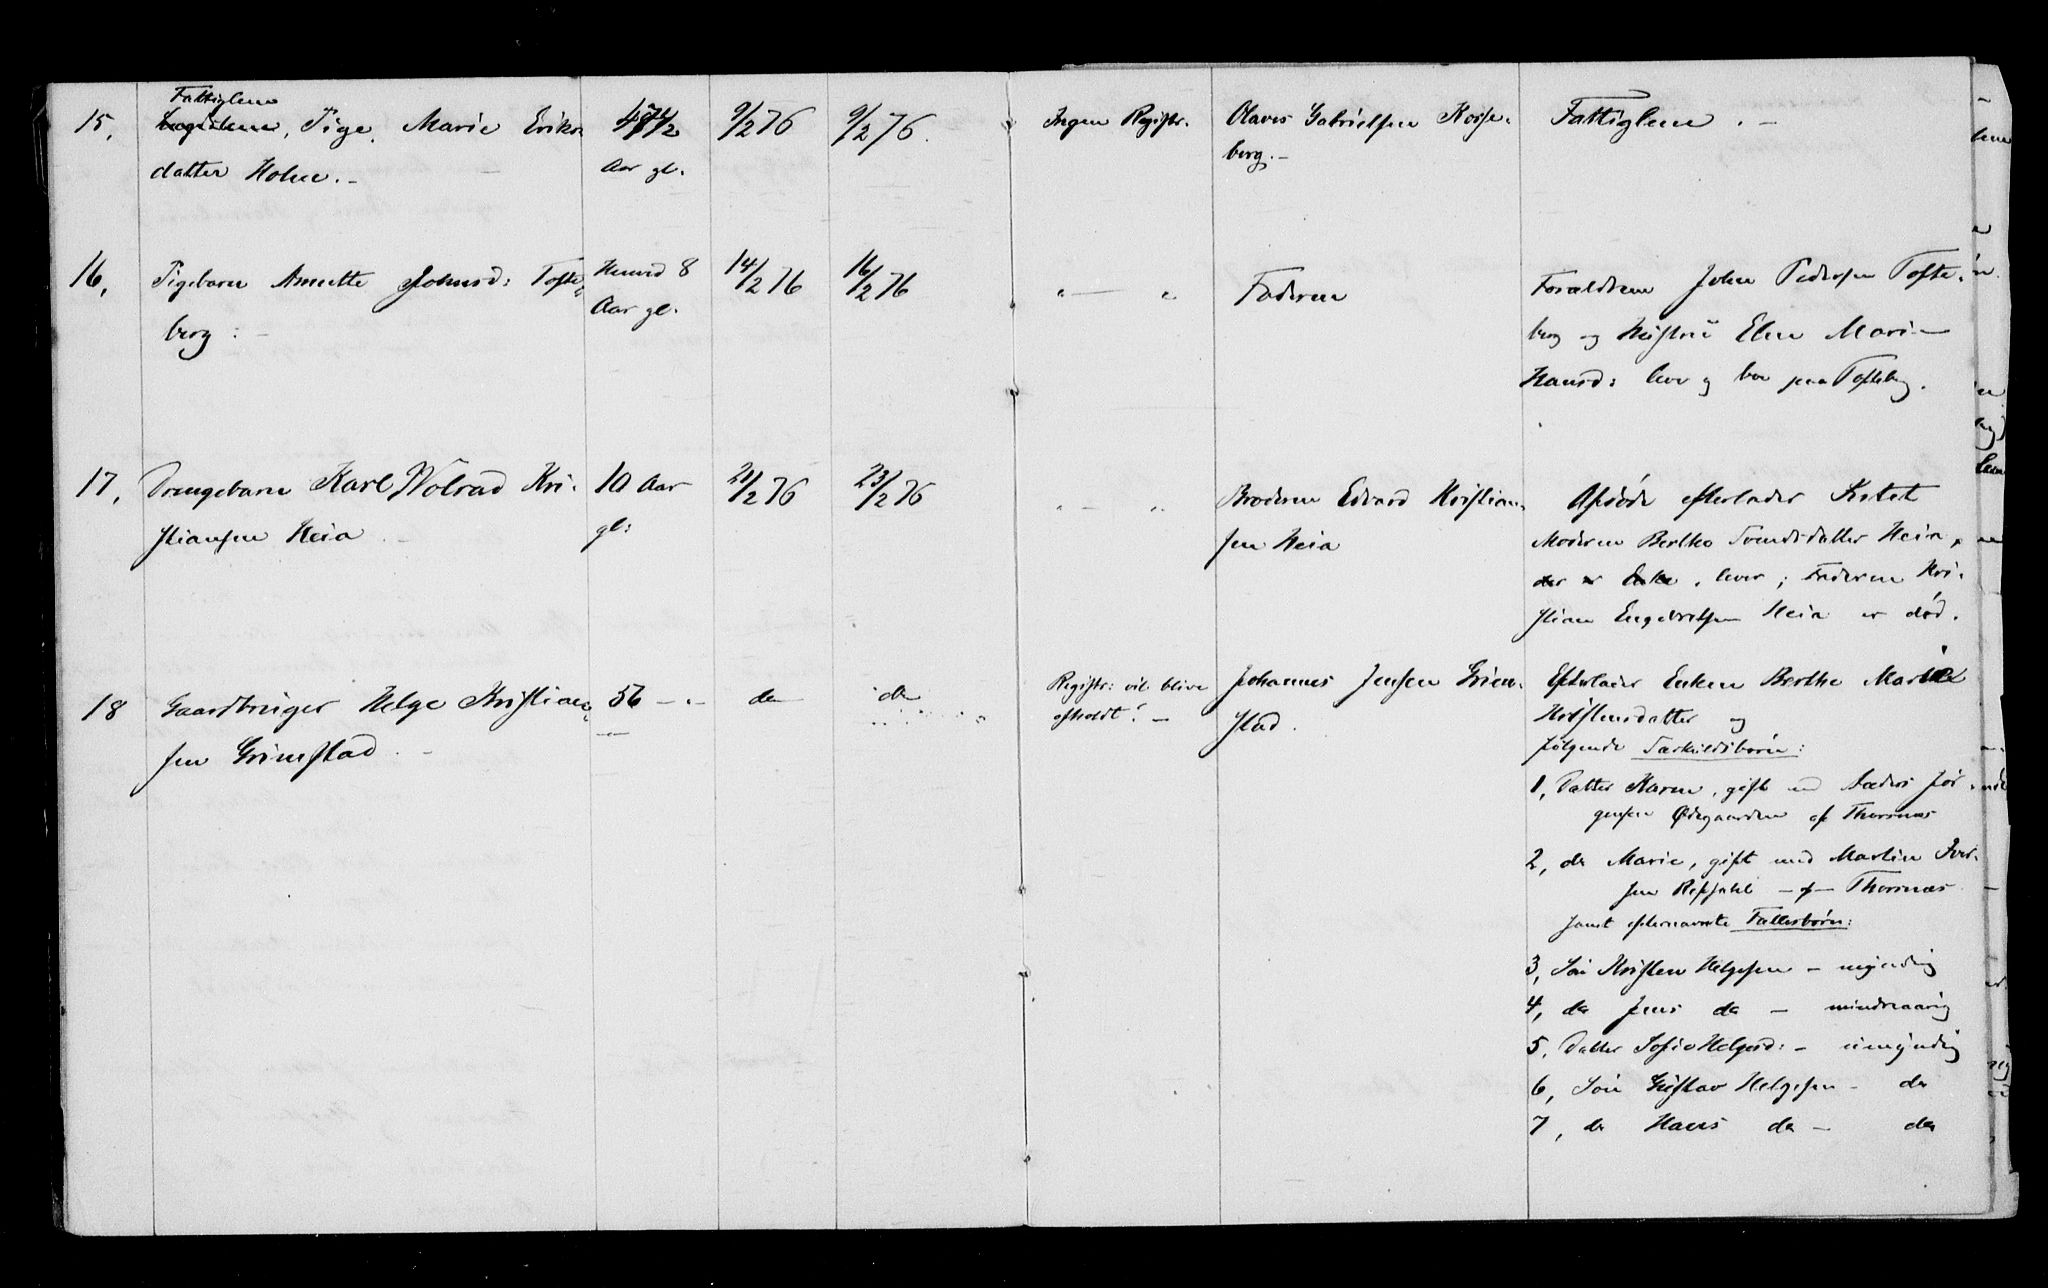 15, Fattiglem, Pige, Marie Eriks
datter Holm. -
Aar gl.
9/2 76
9/2 76.
Ingen Registr.
Olaves Gabrielsen Korse-
berg. -
Fattiglem. -
16, Pigebarn Annette Johnsd: Tofte
berg: -
Henved 8
Aar gl.
14/2 76
16/2 76
" — "
Faderen
Forældrene John Pedersen Tofte-
berg og Hustru Elen Marie
Hansd: lever og bor paa Tofteberg.
17, Drengebarn Karl Wolrad Kri-
stiansen Heia -
10 Aar
gl:
21/2 76
23/2 76
" - "
Broderen Edvard Kristian-
sen Heia
Afdøde efterlader Intet
Moderen Berthe Svendsdatter Heia,
der er Enke, lever; Faderen Kri-
stian Engebretsen Heia er død.
18 Gaardbruger Helge Kristian-
sen Grimstad. -
56 - " -
do
do
Registr: vil blive
afholdt. -
Johannes Jensen Grim-
stad.
Efterlader Enken Berthe Marie
Kristensdatter og
følgende Særkuldsbørn:
1, Datter Karen, gift med Anders Jør-
gensen Ødegaarden af Thorsnæs
2, do Marie, gift med Martin Iver-
sen - af - Thorsnæs
samt efternævnte Fællesbørn:
3, Søn Kristen Helgesen - myndig
4, do Jens do - mindreaarig
5, Datter Sofie Helgesd: - umyndig
6, Søn Gustav Helgesen - do
7, do Hans do - do